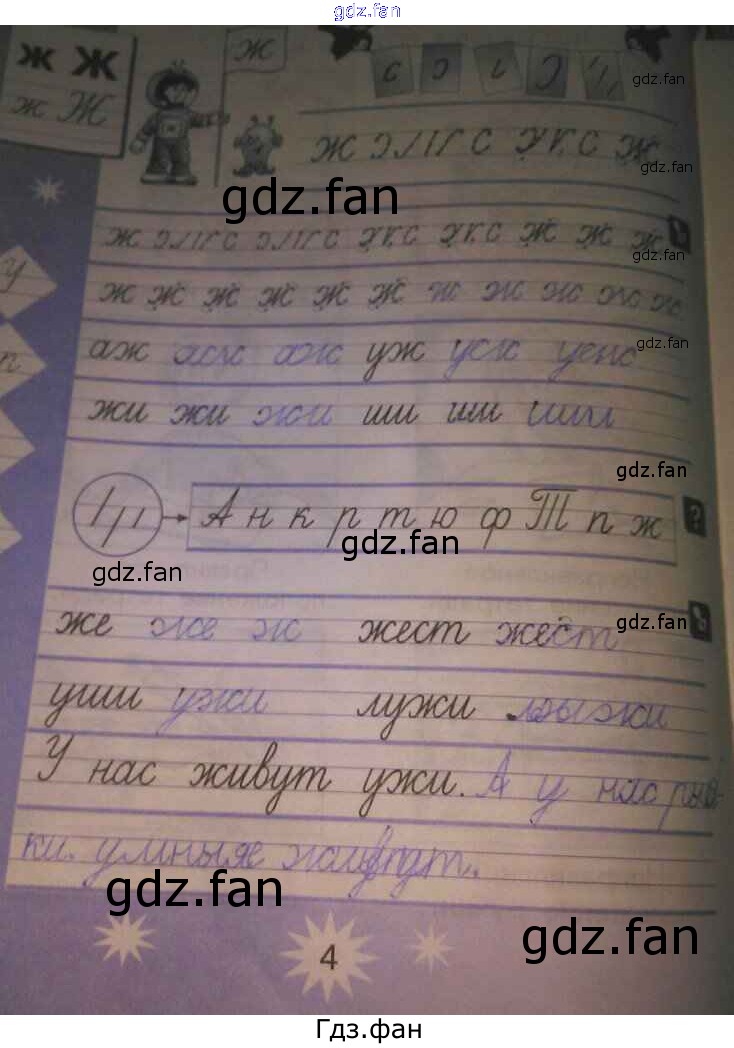 gdz.fan
ж Ж ж
ж Ж
gdz.fan
ж с ж
gdz.fan
gdz.fan
ж ж ж ж
gdz.fan
ж ж ж ж ж ж ж ж ж ж ж
аж аж аж уж уж уж
gdz.fan
жи жи жи ши ши ши
gdz.fan
А н к р т ю ф Т п ж
?
gdz.fan
gdz.fan
же же ж жест жест
gdz.fan
уши ужи лужи лыжи
У нас живут ужи. А у нас
ки. умные живут.
gdz.fan
gdz.fan
4
Гдз.фан